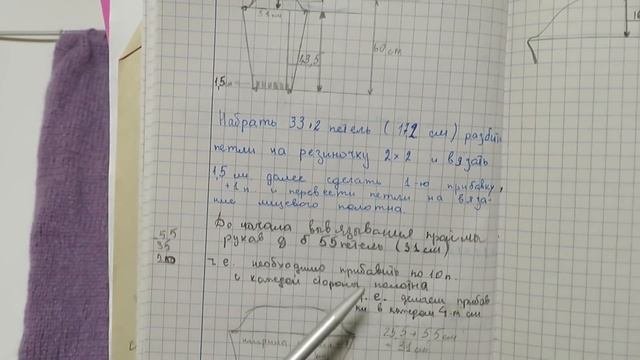 51 см
13,5
60 см
1,5 см
Набрать 33+2 петель (172 см) разбить
петли на резиночку 2×2 и вязать
1,5 см. далее сделать 1-ю прибавку,
+1 п. и перевести петли на вяза-
ние лицевого полотна.
До начала вывязывания проймы
рукав д б 55 петель (31 см)
5,5
35
20
т.е. необходимо прибавить по 10 п.
с каждой стороны полотна
т.е. делаем прибав
ки в котором 4-м см
25,5 + 5,5 см
= 31 см
ширина